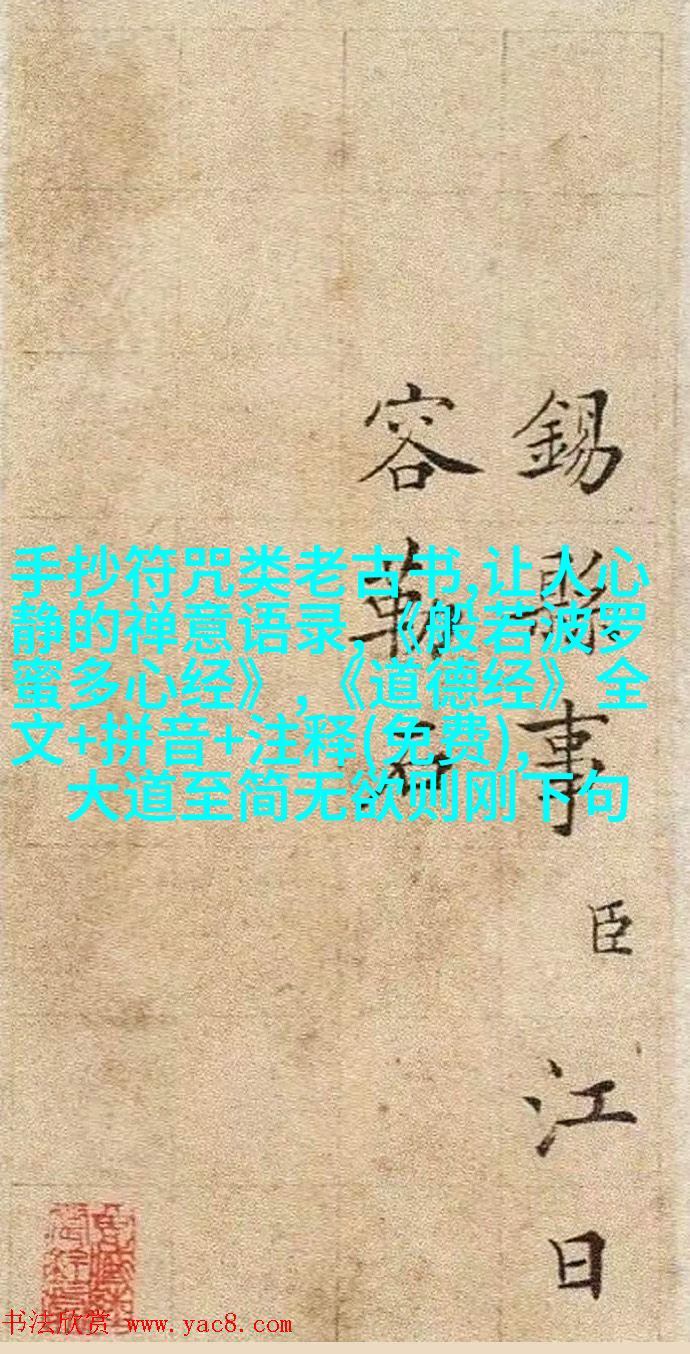 锡
事
臣
江
日
容
手抄符咒类老古书,让人心
静的禅意语录,《般若波罗
蜜多心经》,《道德经》全
文+拼音+注释(免费),
大道至简无欲则刚下句
书法欣赏 www.yac8.com